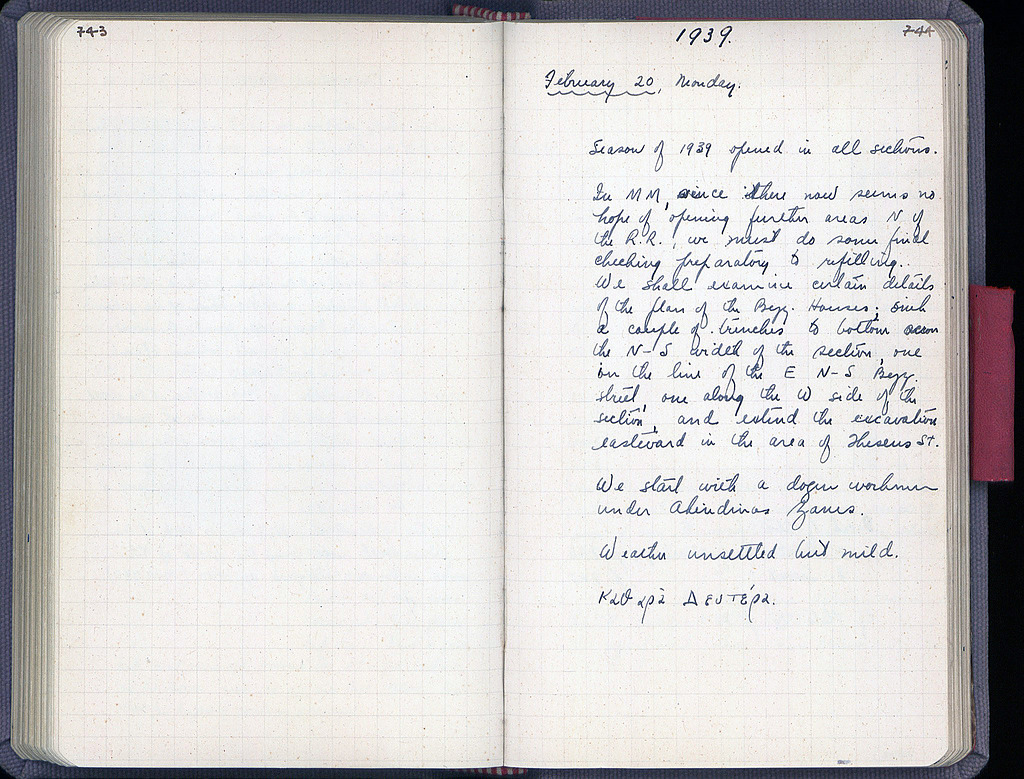 743
744
1939.
February 20, Monday.
Season of 1939 opened in all sections.
In MM, since there now seems no
hope of opening further areas N of
the R.R., we must do some final
checking preparatory to refilling.
We shall examine certain details
of the plan of the Byz. Houses; sink
a couple of trenches to bottom across
the N-S width of the section, one
on the line of the E N-S Byz.
street, one along the W side of the
section, and extend the excavation
eastward in the area of Theseus St.
We start with a dozen workmen
under
Weather unsettled but mild.
Καθαρὰ Δευτέρα.